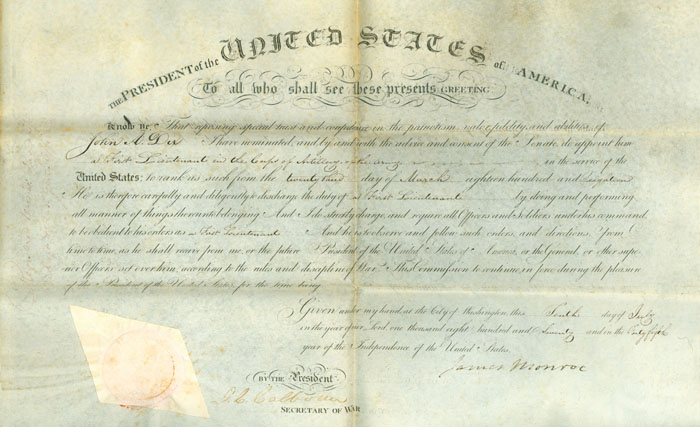 THE PRESIDENT of the UNITED STATES of AMERICA,
To all who shall see these presents GREETING
Know ye, That reposing special trust and confidence in the patriotism, valor, fidelity, and abilities of
John A. Dix I have nominated, and by and with the advice and consent of the Senate, do appoint him
a First Lieutenant in the Corps of Artillery of the Army in the service of the
United States: to rank as such from the day of March eighteen hundred and eighteen
He is therefore carefully and diligently to discharge the duty of a First Lieutenant by doing and performing
all manner of things thereunto belonging. And I do strictly charge, and require all Officers and Soldiers under his command,
to be obedient to his orders as a First Lieutenant. And he is to observe and follow such orders, and directions, from
time to time, as he shall receive from me, or the future President of the United States of America, or the General, or other supe-
rior Officers set over him, according to the rules and discipline of War. This Commission to continue in force during the pleasure
of the President of the United States, for the time being.
Given under my hand, at the City of Washington, this Tenth day of July
in the year of our Lord, one thousand eight hundred and twenty and in the forty fifth
year of the Independence of the United States.
James Monroe
BY THE President
J. C. Calhoun
SECRETARY OF WAR